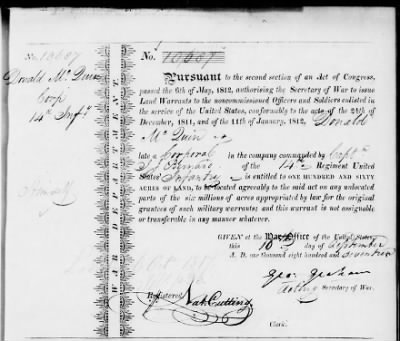 No. 10607
Donald McQuin
Corp
14th Infy
WAR DEPARTMENT.
No. 10607
Pursuant to the second section of an Act of Congress,
passed the 6th of May, 1812, authorising the Secretary of War to issue
Land Warrants to the noncommissioned Officers and Soldiers enlisted in
the service of the United States, conformably to the acts of the 24th of
December, 1811, and of the 11th of January, 1812, Donald
McQuin
late a Corporal in the company commanded by Captn
of the 14th Regiment United
States' Infantry is entitled to ONE HUNDRED AND SIXTY
ACRES OF LAND, to be located agreeably to the said act on any unlocated
parts of the six millions of acres appropriated by law for the original
grantees of such military warrants; and this warrant is not assignable
or transferable in any manner whatever.
GIVEN at the War Office of the United States,
this 10th day of September
A. D. one thousand eight hundred and seventeen
Geo. Graham
Acting Secretary of War.
Registered Nat. Cutting
Clerk.